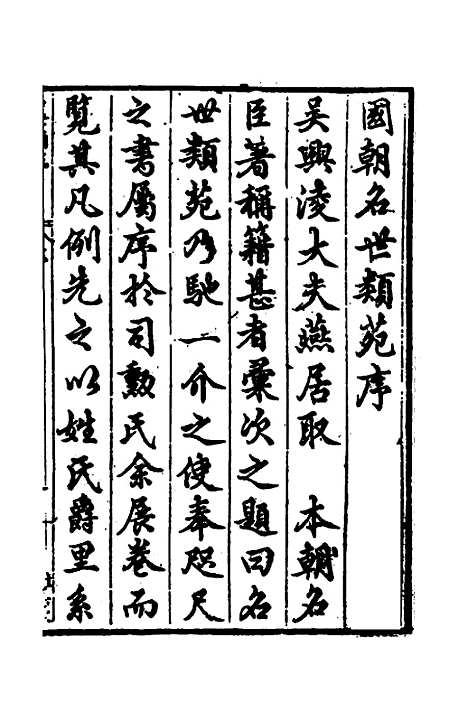 國朝名世類苑序
吳興淩大夫燕居取　本朝名
臣著稱籍甚者彙次之題曰名
世類苑乃馳一介之使奉咫尺
之書屬序於司勳氏余展卷而
覽其凡例先之以姓氏爵里系